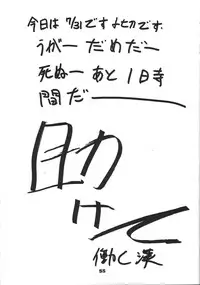 今日は 7/31です 〆切です.
うがー だめだー
死ぬー あと 1日寺
間だー
助
けて
働く漢
55